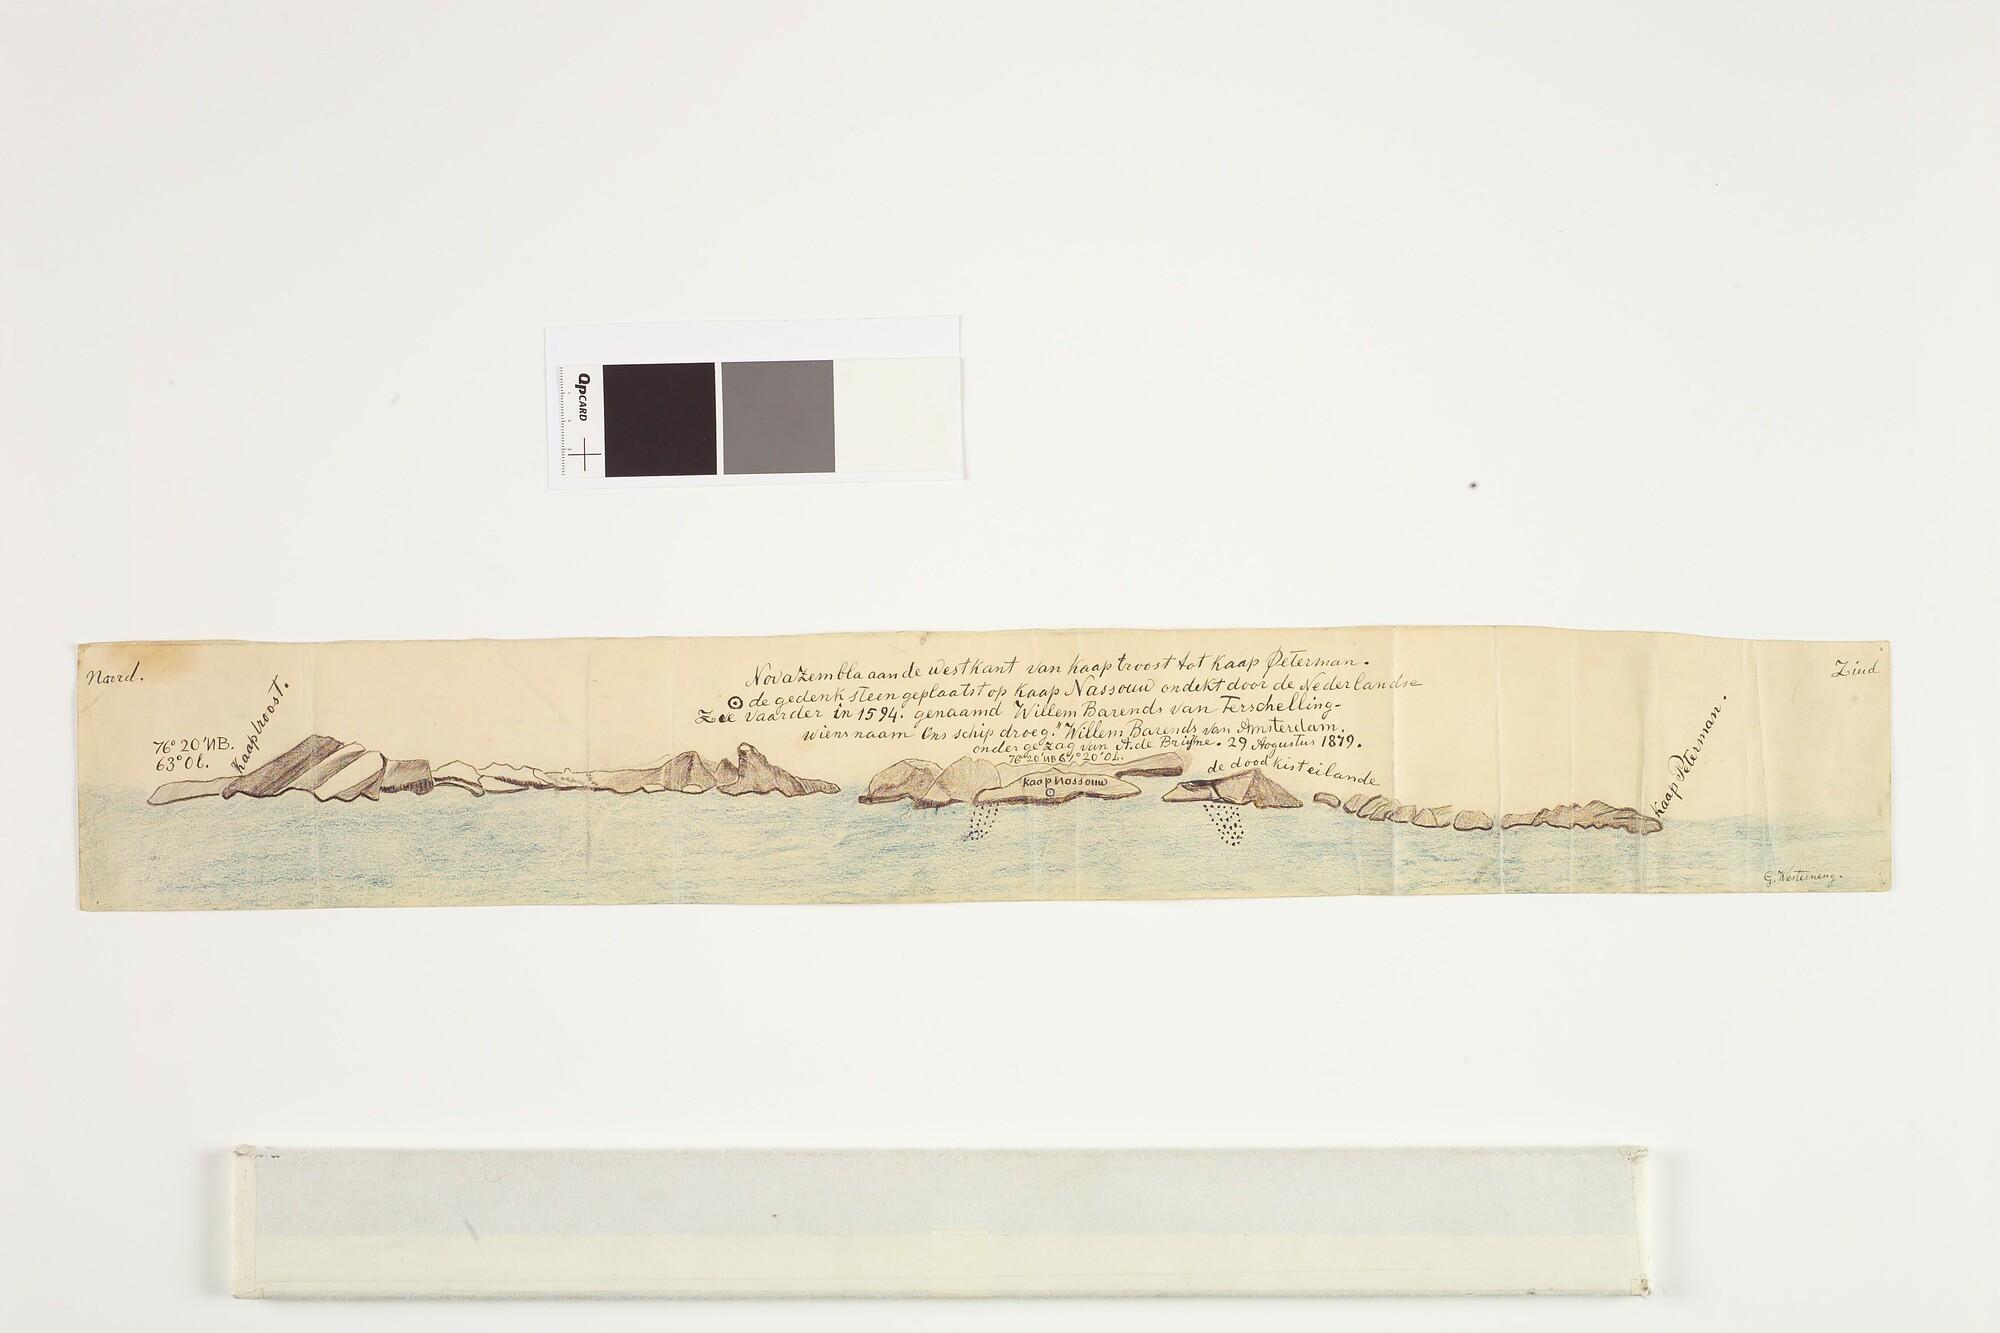 QPCARD
Noord.
Zuid
Kaap troost.
76° 20' NB.
63° Ol.
Nova Zembla aan de westkant van Kaap troost tot Kaap Peterman.
de gedenk steen geplaatst op Kaap Nassouw ondekt door de Nederlandse
Zee vaarder in 1594. genaamd Willem Barends van Terschelling-
wiens naam Ons schip droeg." Willem Barends van Amsterdam.
onder gezag van A. de Bruijne. 29 Aogustus 1879.
76° 20' NB 20' OL.
de dood kist eilande
Kaap Nassouw
Kaap Peterman.
G.